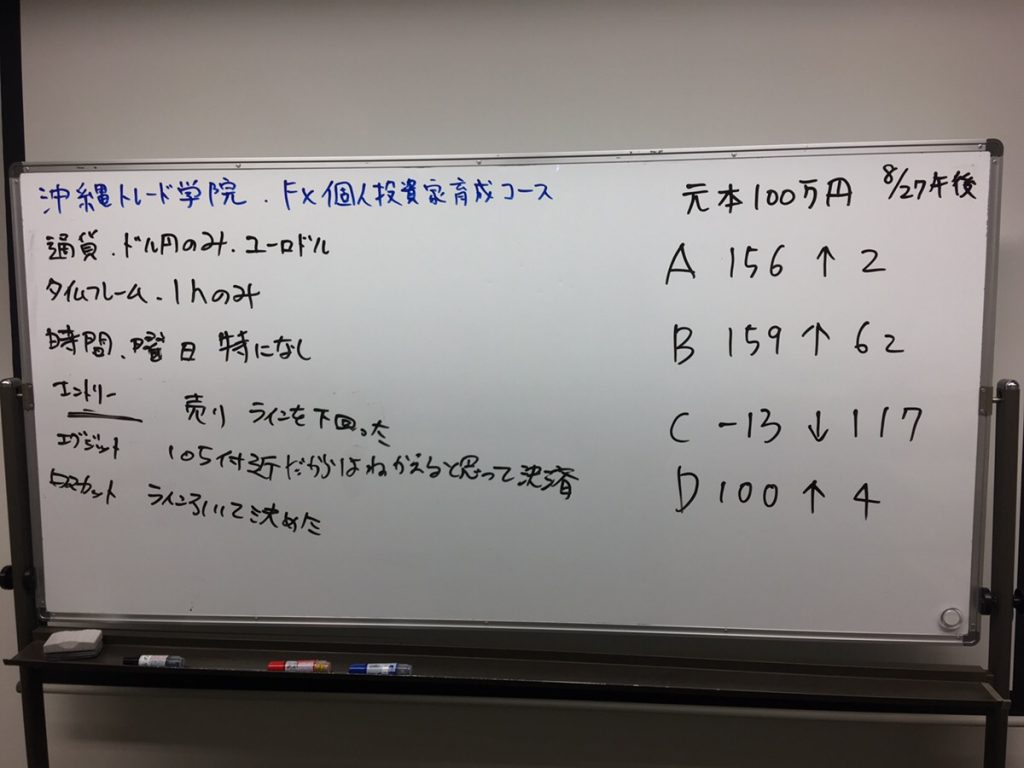 沖縄トレード学院.FX個人投資家育成コース
通貨.ドル円のみ.ユーロドル
タイムフレーム.1hのみ
時間、曜日 特になし
エントリー 売り ラインを下回った
エグジット 105付近だからはねかえると思って決済
ロスカット ライン引いて決めた
元本100万円 8/27午後
A 156 ↑ 2
B 159 ↑ 62
C -13 ↓ 117
D 100 ↑ 4